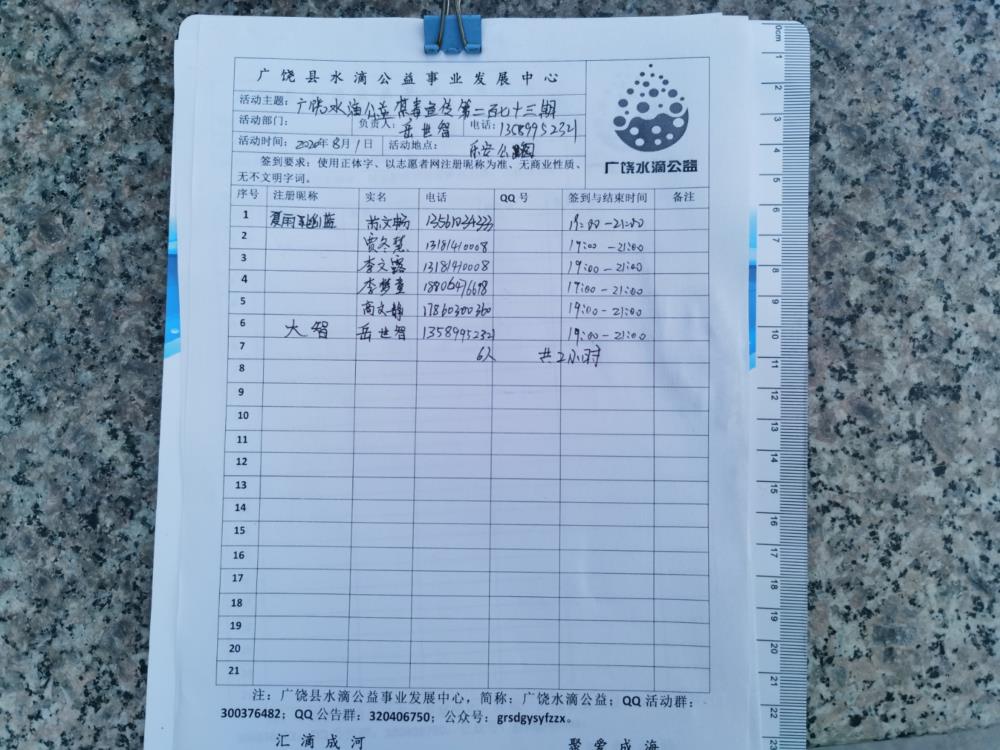 广饶县水滴公益事业发展中心
活动主题：广饶水滴公益禁毒宣传第二百七十三期
活动部门： 负责人：岳世智 电话：13589952321
活动时间：2020年8月1日 活动地点：乐安公园
签到要求：使用正体字、以志愿者网注册昵称为准、无商业性质、
无不文明字词。
广饶水滴公益
序号 注册昵称 实名 电话 QQ号 签到与结束时间 备注
1 夏雨 文畅 13561034333 19:00-21:00
2 贾冬慧 13181410008 19:00-21:00
3 李文露 13181410008 19:00-21:00
4 李梦童 18806476698 19:00-21:00
5 高文静 17860300360 19:00-21:00
6 大智 岳世智 13589952321 19:00-21:00
7 6人 共2小时
8
9
10
11
12
13
14
15
16
17
18
19
20
21
注：广饶县水滴公益事业发展中心，简称：广饶水滴公益；QQ活动群：
300376482；QQ公告群：320406750；公众号：grsdgysyfzzx。
汇滴成河 聚爱成海
0cm
1
2
3
4
5
6
7
8
9
10
11
12
13
14
15
16
17
18
19
20
21
22
23